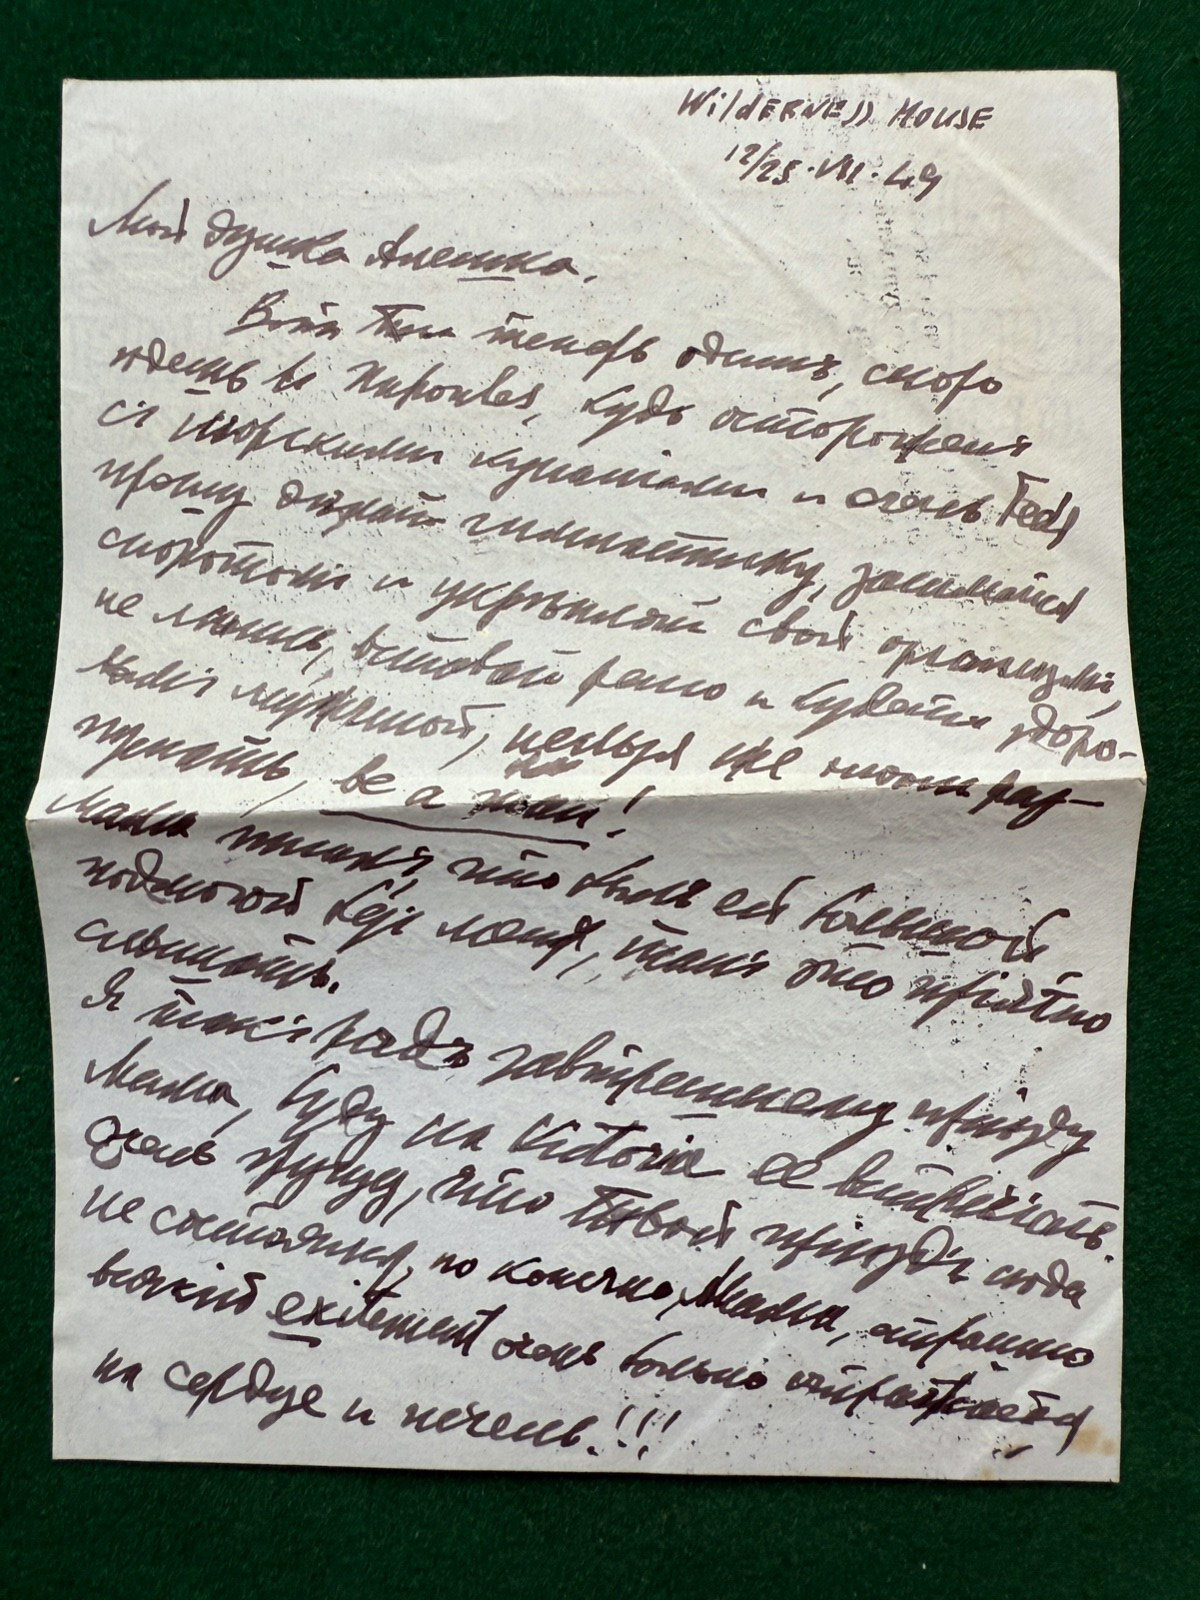 WILDERNESS HOUSE
12/25.VIII.49
Мой душка Алешка,
Вотъ Ты теперь одинъ, скоро
ѣдешь въ Napoules, будь остороженъ
съ морскими купаніями и очень Тебя
прошу дѣлай гимнастику, занимайся
спортомъ и укрѣпляй свой организмъ,
не лѣнись, вставай рано и будетъ здоро-
мужчиной, нельзя же такъ раз-
be a man!
Мама пишетъ что былъ ей большой
подмогой безъ меня, такъ это пріятно
слышать.
Я такъ радъ завтрешнему пріѣзду
Мама, буду на Victoria ее встрѣчать.
Очень грущу, что Твой пріѣздъ сюда
не состоялся, но конечно, Мама, страшно
всякій exitement очень больно отражается
на сердце и печень!!!